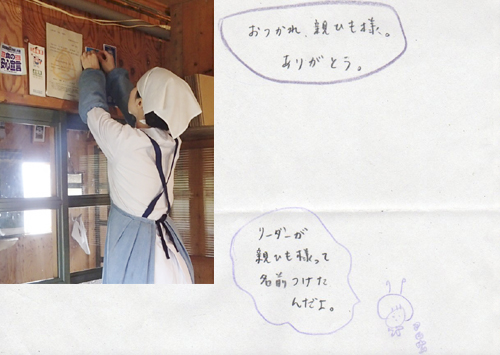 おつかれ、親ひも様。
ありがとう。
リーダーが
親ひも様って
名前つけた
んだよ。